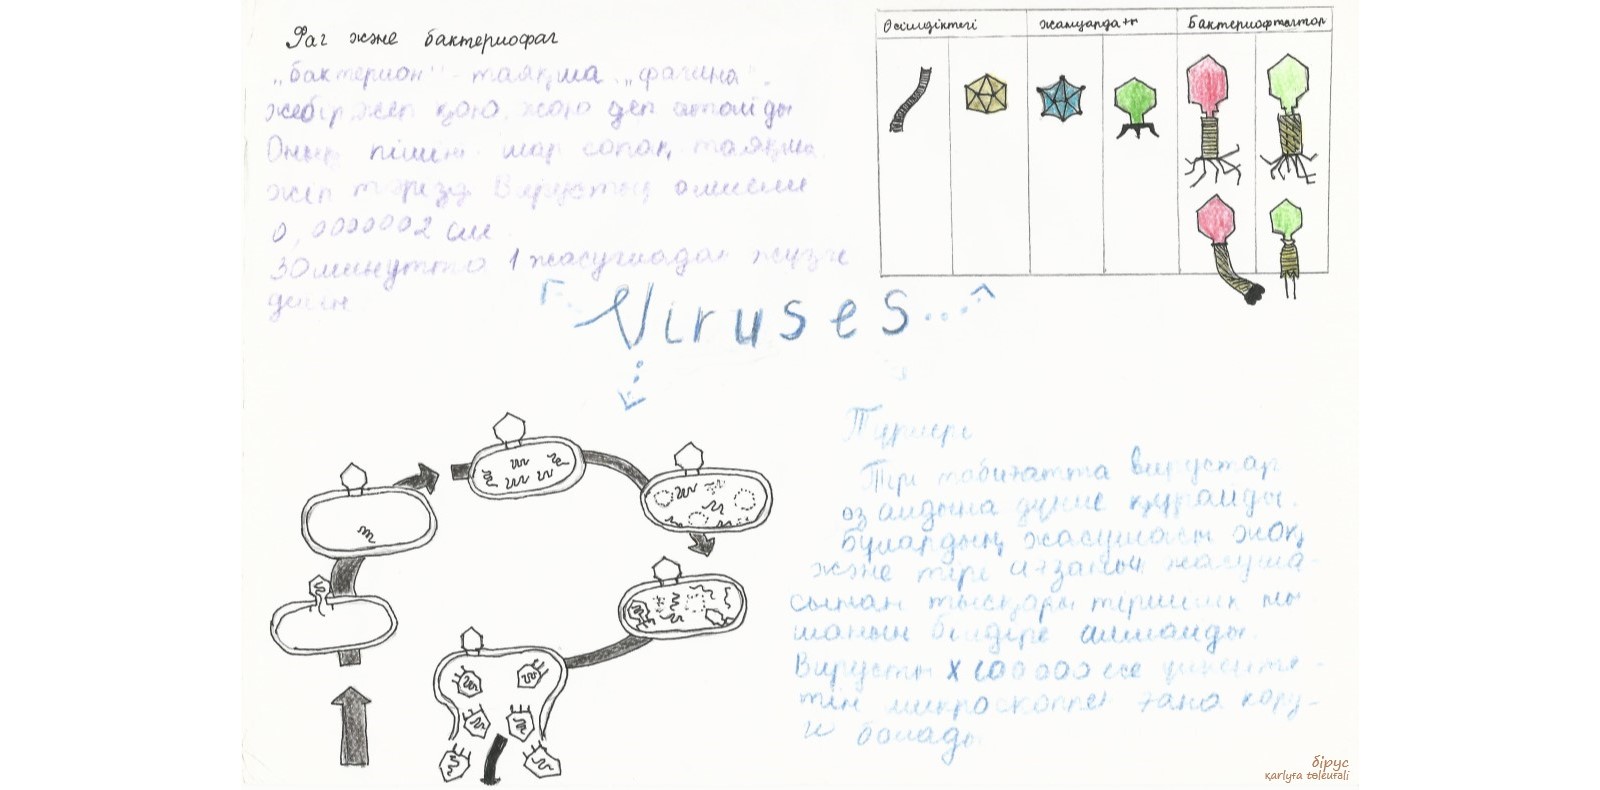 Фаг және бактериофаг
„бактерион" - таяқша „фагина" -
жебір жеп қою, жою деп аталады
Оның пішіні шар сопақ, таяқша
жеп тәрізд Вирустың
0,0000002 см
30 минутта 1 жасушадан жүзге
дейін
Өсімдіктегі
жануарда+ғ
Бактериофагтар
Viruses
Түрлері
Тірі табиғатта вирустар
өз алдына дүние құрайды.
Бұлардың жасушасы жоқ,
және тірі ағзаның жасуша-
сынан тысқары тіршілік ны
шанын білдіре алмайды.
Вирусты х 100 000 есе үлкейте-
тін микроскоппен ғана кору-
ге болады
бірус
қarlyға tөleuғali